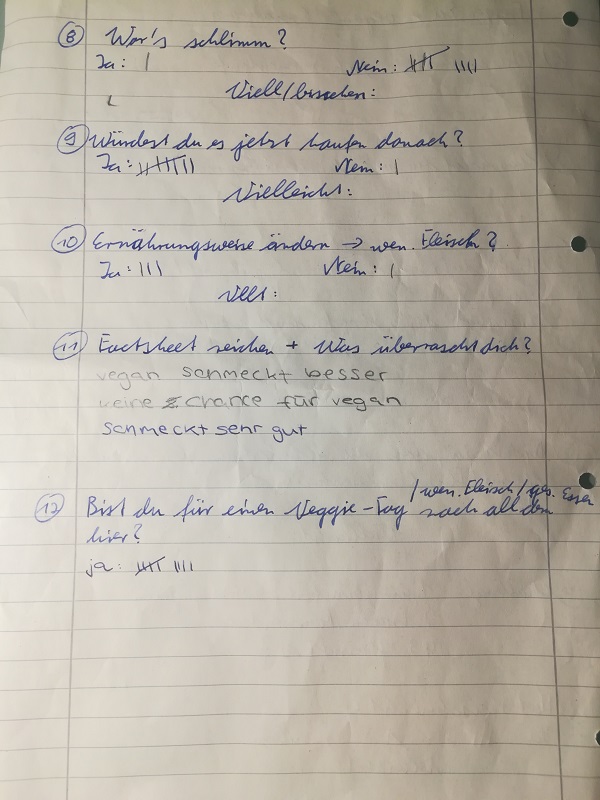 8 War's schlimm?
Ja: | Nein: |||| ||||
Viell/bisschen:
9 Würdest du es jetzt kaufen danach?
Ja: Nein: |
Vielleicht:
10 Ernährungsweise ändern → wen. Fleisch?
Ja: ||| Nein: |
Vllt:
11 Factsheet zeichen + Was überrascht dich?
vegan schmeckt besser
keine Chance für vegan
schmeckt sehr gut
/wen. Fleisch/ges. Essen
12 Bist du für einen Veggie-Tag nach all dem
hier?
ja: |||| ||||